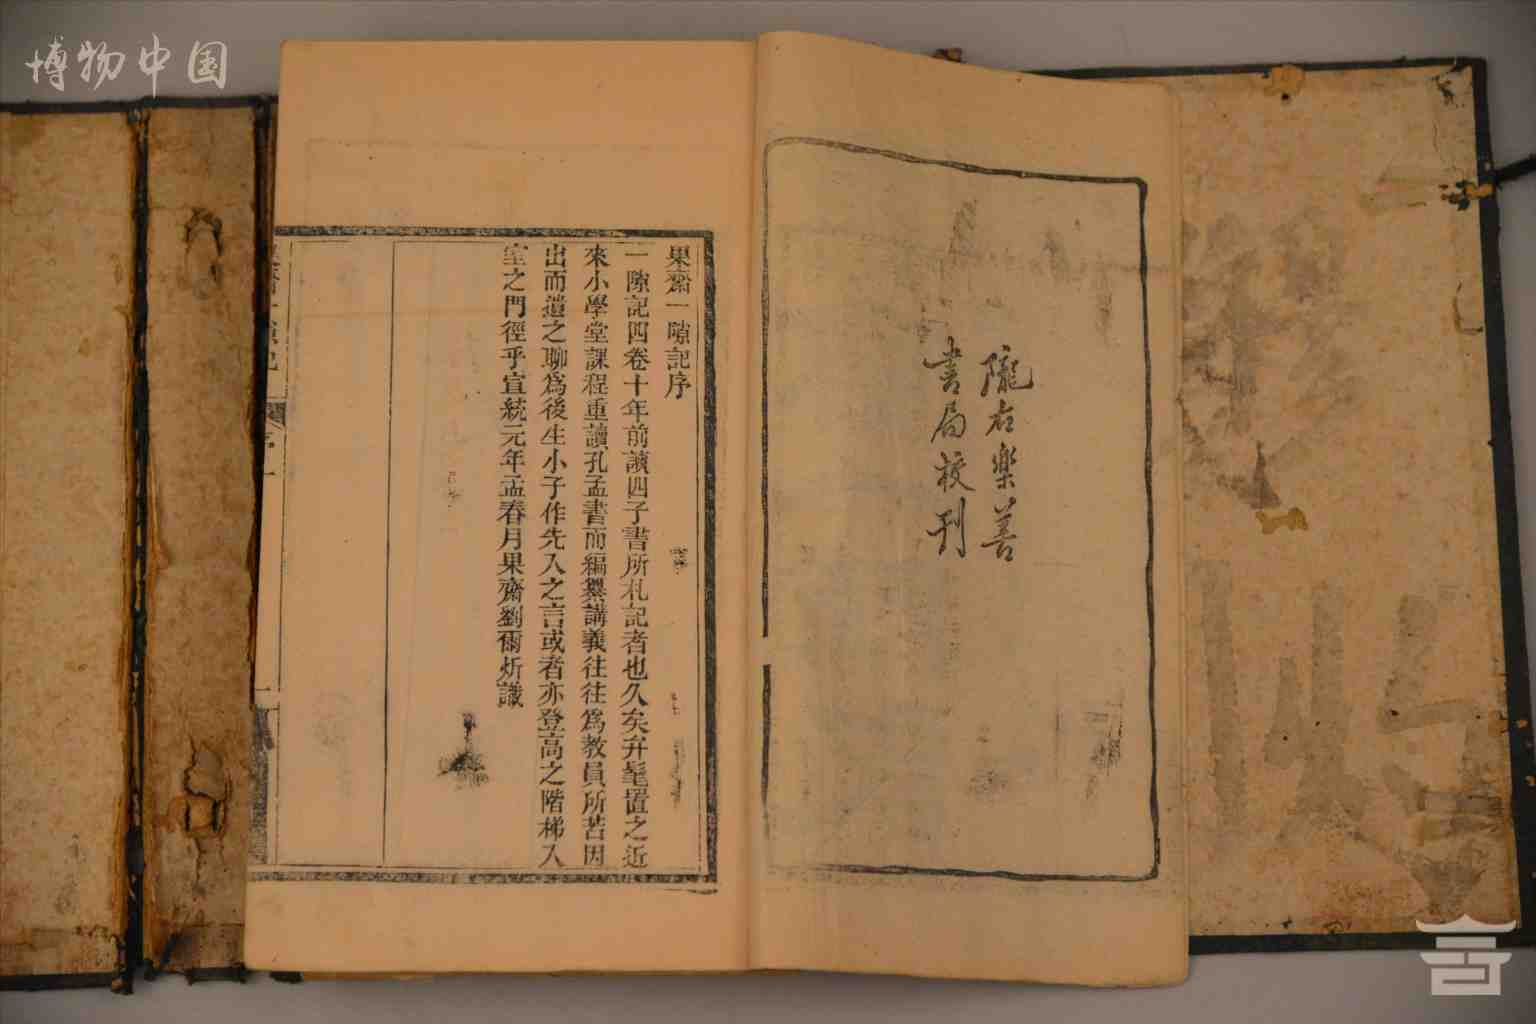 博物中国
隴右樂善
書局校刊
果齋一隙記序
一隙記四卷十年前讀四子書所札記者也久矣弁髦置之近
來小學堂課程重讀孔孟書而編纂講義往往爲教員所苦因
出而遺之聊爲後生小子作先入之言或者亦登高之階梯入
室之門徑乎宣統元年孟春月果齋劉爾炘識
一隙記
序
一